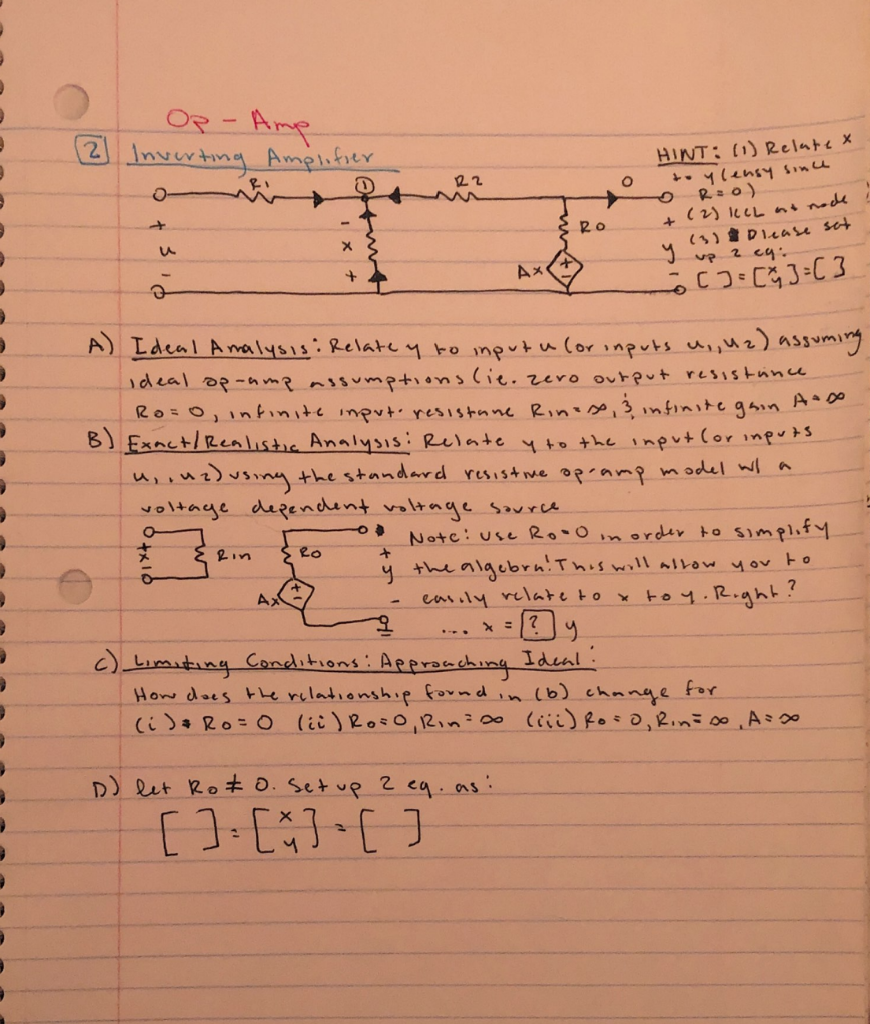 Op - Amp
2 Inverting Amplifier
HINT: (1) Relate x
to y (easy since
R=0)
(2) KCL at node
(3) Please set
up 2 eq:
[ ] = [x y] = [ ]
R1
1
R2
0
+
u
-
-
x
+
Ro
Ax
+
-
+
y
-
A) Ideal Analysis: Relate y to input u (or inputs u1, u2) assuming
ideal op-amp assumptions (ie. zero output resistance
Ro = 0, infinite input resistane Rin = ∞, & infinite gain A = ∞
B) Exact/Realistic Analysis: Relate y to the input (or inputs
u1, u2) using the standard resistive op-amp model w/ a
voltage dependent voltage source
+
x
-
Rin
Ro
Ax
+
-
+
y
-
Note: use Ro=0 in order to simplify
the algebra! This will allow you to
easily relate to x to y. Right?
... x = [?] y
C) Limiting Conditions: Approaching Ideal:
How does the relationship found in (b) change for
(i) Ro = 0 (ii) Ro = 0, Rin = ∞ (iii) Ro = 0, Rin = ∞, A = ∞
D) let Ro ≠ 0. Set up 2 eq. as:
[ ] = [x y] = [ ]